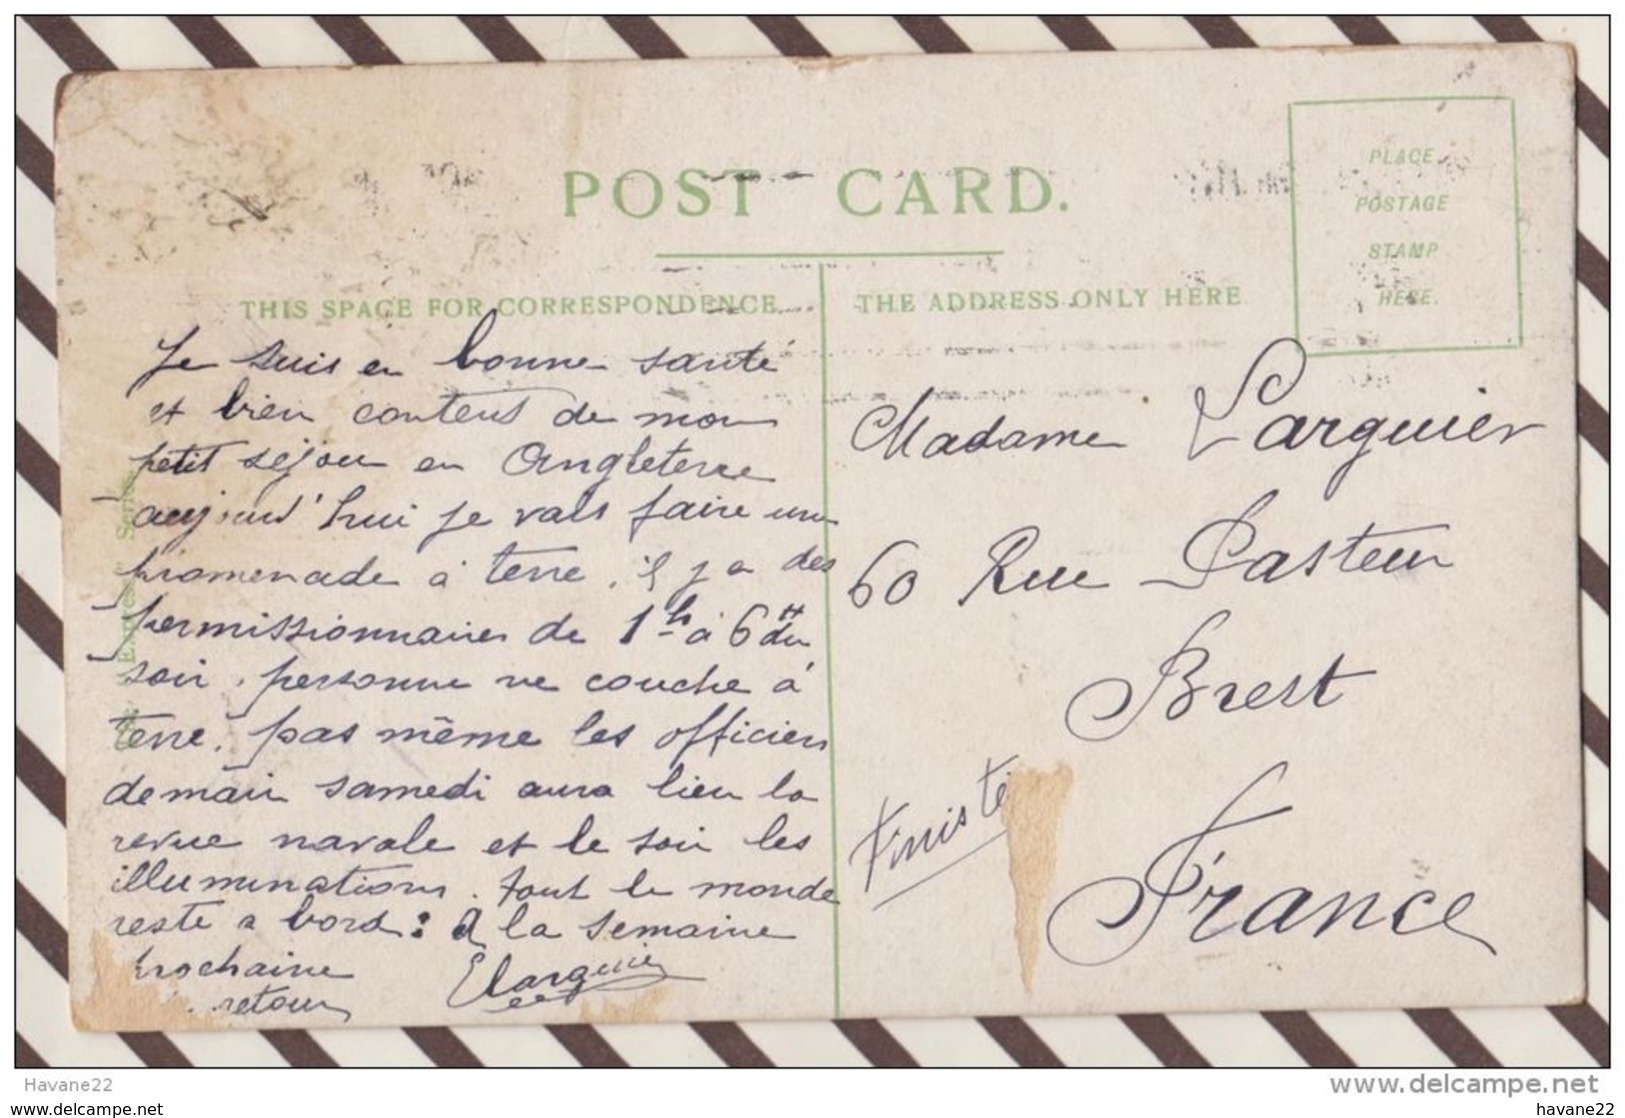 POST CARD.
PLACE
POSTAGE
STAMP
HERE.
THIS SPACE FOR CORRESPONDENCE
THE ADDRESS ONLY HERE
Je suis en bonne santé
et bien contens de mon
petit séjou en Angleterre
aujourd'hui je vais faire une
promenade à terre, il y a des
permissionnaires de 1h à 6h du
soir. personne ne couche à
terre, pas même les officiers
demain samedi aura lieu la
revue navale et le soir les
illuminations. tout le monde
reste a bord: A la semaine
prochaine
retour
ELarguier
Series
Madame Larguier
60 Rue Pasteur
Brest
Finistè
France
Havane22
www.delcampe.net
www.delcampe.net
havane22